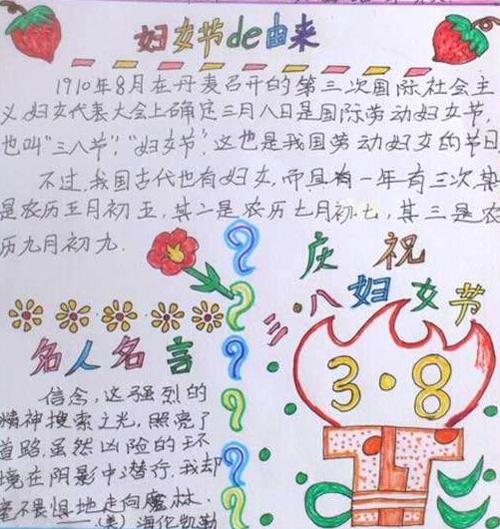 妇女节de由来
1910年8月在丹麦召开的第三次国际社会主
义妇女代表大会上确定三月八日是国际劳动妇女节,
也叫“三八节”,“妇女节”.这也是我国劳动妇女的节日
不过,我国古代也有妇女,而具有一年有三次.其
是农历五月初五,其二是农历七月初七,其三是农
历九月初九.
庆祝
三八妇女节
3·8
名人名言
信念,这强烈的
精神搜索之光,照亮了
道路,虽然凶险的环
境在阴影中潜行,我却
毫不畏惧地走向魔林.
——(美)海伦凯勒